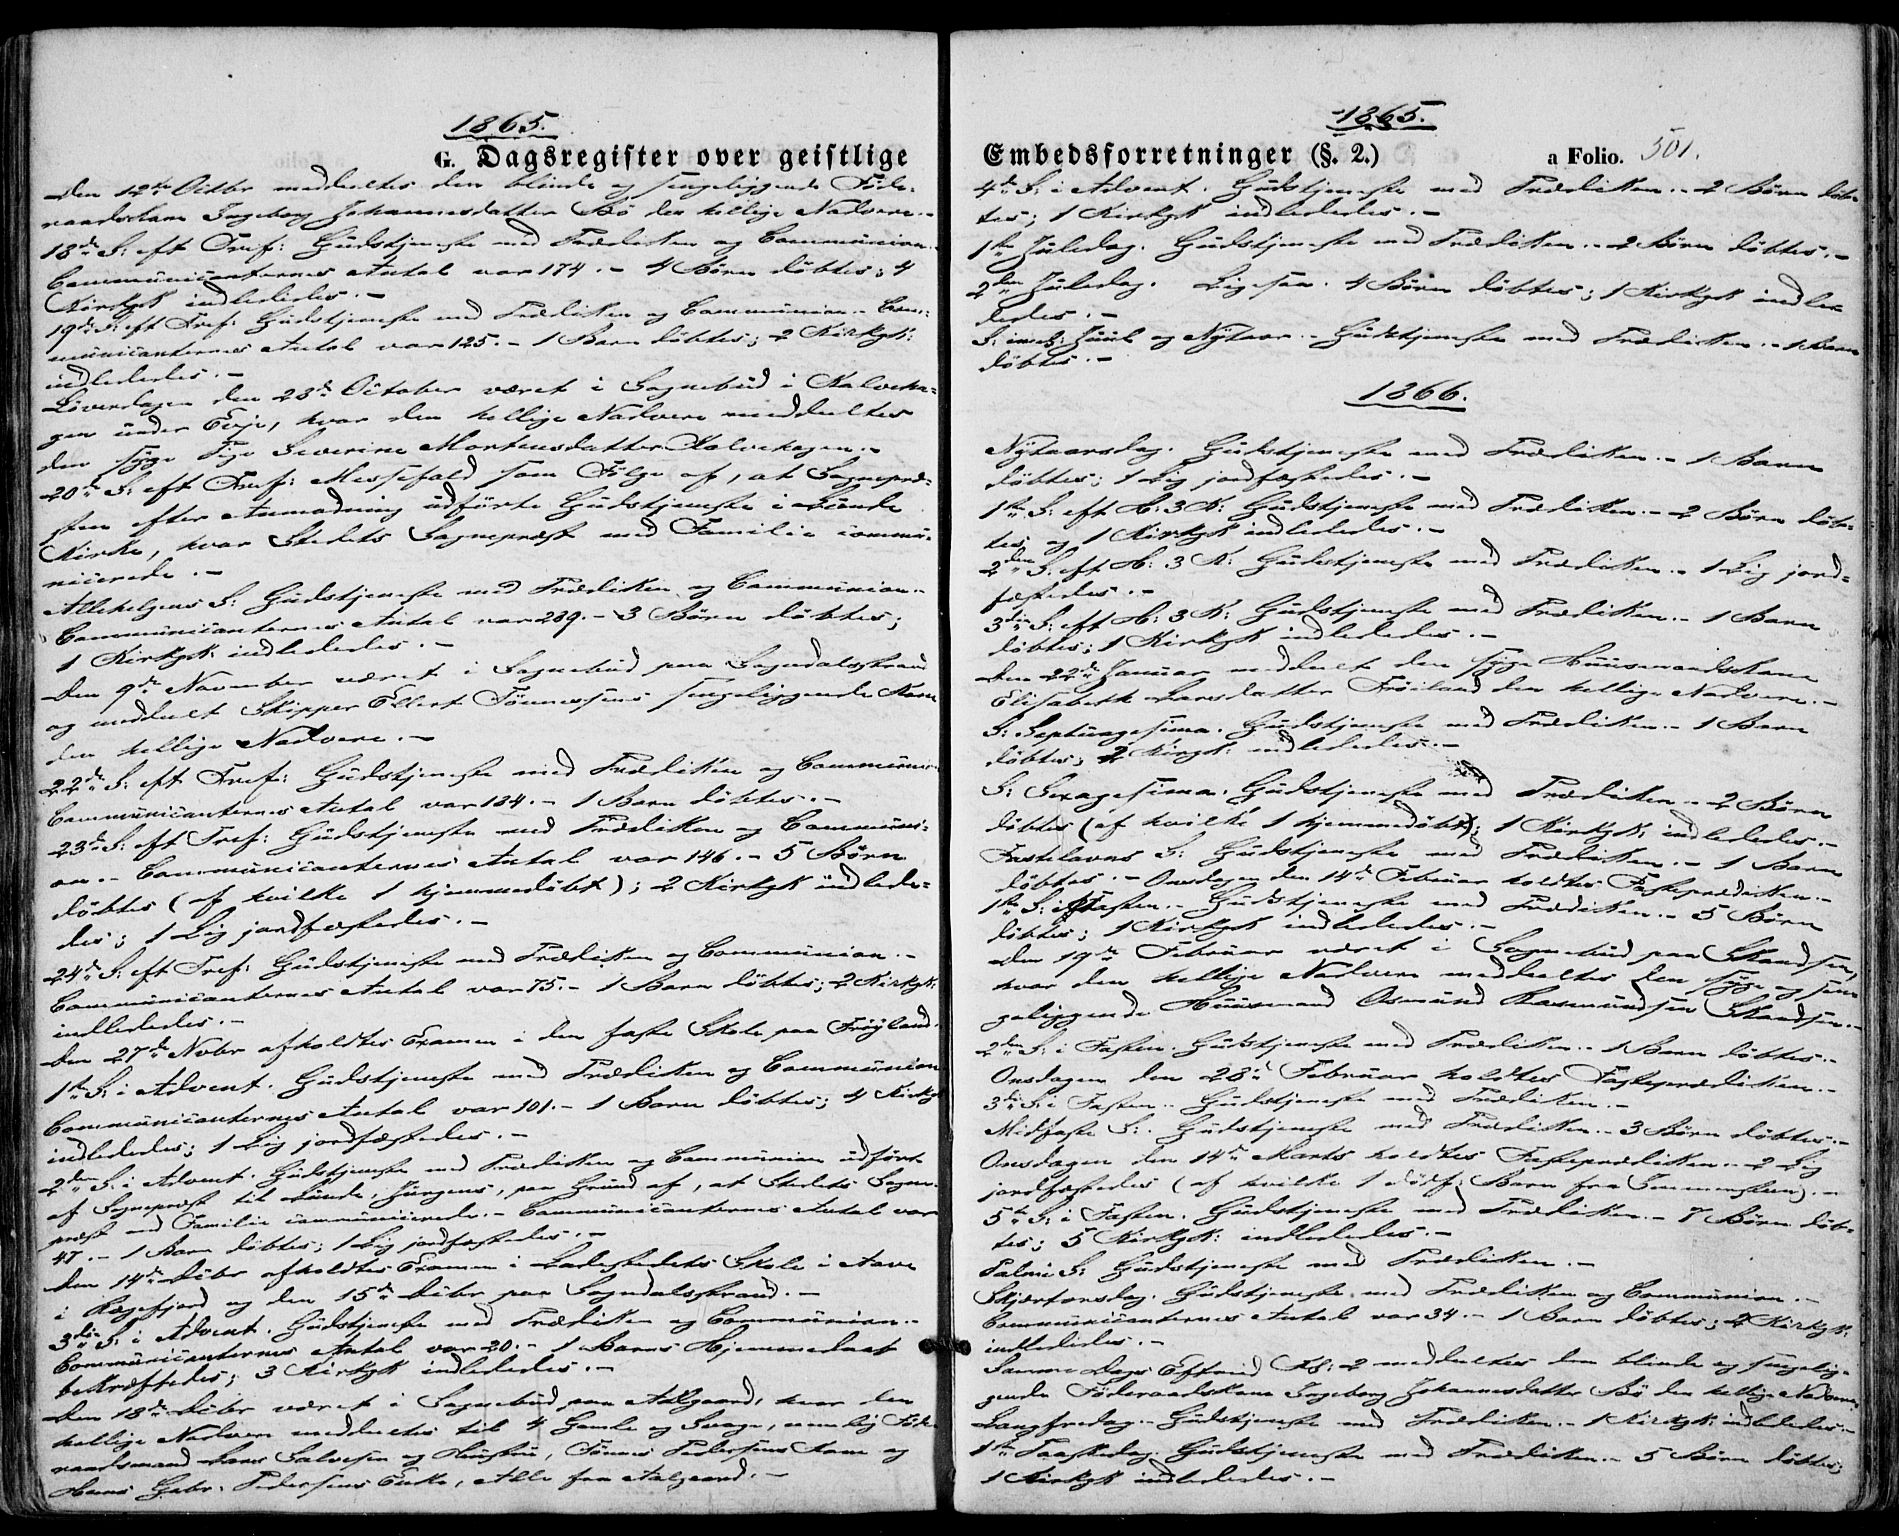 1865.
G. Dagsregister over geistlige
Den 12te Octbr meddeeltes den blinde og sengeliggende Føde-
raadskone Ingeborg Johannesdatter Bø den hellige Nadvere. -
18de S: eft Tref: Gudstjeneste med Prædiken og Communion.
Communicanternes Antal var 174. - 4 Børn døbtes; 4
Kirkgk indlededes. -
19de S: eft Tref: Gudstjeneste med Prædiken og Communion - Com-
municanternes Antal var 125. - 1 Barn døbtes; 2 Kirkgk:
indlededes. -
Løverdagen den 28de October været i Sognebud i Kalveha-
gen under Eeje, hvor den hellige Nadvere meddeeltes
den syge Pige Severine Mortensdatter Kalvehagen. -
20de S: eft Tref: Messefald som Følge af, at Sognepræ-
sten efter Anmodning udførte Gudstjeneste i Lunde
Kirke, hvor Stedets Sognepræst med Familie commu-
nicerede. -
Allehelgens S: Gudstjeneste med Prædiken og Communion. -
Communicanternes Antal var 239. - 3 Børn døbtes;
1 Kirkgk: indlededes. -
Den 9de November været i Sognebud paa Sogndalsstrand
og meddeelt Skipper Ellert Tönnessens sengeliggende Kone
den hellige Nadvere. -
22de S: eft Tref: Gudstjeneste med Prædiken og Communion
Communicanternes Antal var 134. - 1 Barn døbtes. -
23de S: eft Tref: Gudstjeneste med Prædiken og Communi-
on. - Communicanternes Antal var 146. - 5 Børn
døbtes (af hvilke 1 hjemmedøbt); 2 Kirkgk indlede-
des; 1 Lig jordfæstedes. -
24de S: eft Tref: Gudstjeneste med Prædiken og Communion. -
Communicanternes Antal var 75. - 1 Barn døbtes; 2 Kirkgk:
indlededes. -
Den 27de Novbr afholdtes Examen i den faste Skole paa Frøyland.
1ste S: i Advent. Gudstjeneste med Prædiken og Communion
Communicanternes Antal var 101. - 1 Barn døbtes; 4 Kirkgk
indlededes; 1 Lig jordfæstedes. -
2den S: i Advent. Gudstjeneste med Prædiken og Communion udført
af Sognepræst til Lunde, Jürgens, paa Grund af, at Stedets Sogne-
præst med Familie communicerede. - Communicanternes Antal var
47. - 1 Barn døbtes; 1 Lig jordfæstedes. -
Den 14de Decbr afholdtes Examen i Ladestedets Skole i Aave
i Rægefjord og den 15de Decbr paa Sogndalsstrand. -
3die S: i Advent. Gudstjeneste med Prædiken og Communion. -
Communicanternes Antal var 20. - 1 Barns Hjemmedaab
bekræftedes; 3 Kirkgk indlededes. -
Den 18de Decbr været i Sognebud paa Aalgaard, hvor den
hellige Nadvere meddeeltes til 4 Gamle og Svage, nemlig Føde-
raadsmand Lars Salvesen og Hustru, Tönnes Pedersens Kone og
Hans Gabr: Pedersens Enke, Alle fra Aalgaard. -
1865.
Embedsforretninger (§. 2.) a Folio. 501.
4de S: i Advent. Gudstjeneste med Prædiken. - 2 Børn døb-
tes; 1 Kirkgk indlededes. -
1ste Juledag. Gudstjeneste med Prædiken. - 2 Børn døbtes. -
2den Juledag. Ligesaa. 4 Børn døbtes; 1 Kirkgk indle-
dedes. -
S: imel: Juul og Nytaar. - Gudstjeneste med Prædiken. - 1 Barn
døbtes. -
1866.
Nytaarsdag. Gudstjeneste med Prædiken. - 1 Barn
døbtes; 1 Lig jordfæstedes. -
1ste S: eft H: 3 K: Gudstjeneste med Prædiken. - 2 Børn døb-
tes og 1 Kirkgk indlededes. -
2den S: eft H: 3 K: Gudstjeneste med Prædiken. - 1 Lig jord-
fæstedes. -
3die S: eft H: 3 K: Gudstjeneste med Prædiken. - 1 Barn
døbtes; 1 Kirkgk indlededes. -
Den 22de Januar meddeelt den syge Huusmandskone
Elisabeth Larsdatter Frøiland den hellige Nadvere. -
S: Septuagesima. Gudstjeneste med Prædiken. - 1 Barn
døbtes; 2 Kirgk: indlededes. -
S: Sexagesima. Gudstjeneste med Prædiken. - 2 Børn
døbtes (af hvilke 1 hjemmedøbt); 1 Kirkgk: indlededes. -
Fastelavns S: Gudstjeneste med Prædiken. - 1 Barn
døbtes. - Onsdagen den 14de Februar holdtes Fasteprædiken. -
1ste S: i Fasten. - Gudstjeneste med Prædiken. - 5 Børn
døbtes; 1 Kirkgk indlededes. -
Den 19de Februar været i Sognebud paa Skandsen,
hvor den hellige Nadvere meddeeltes den syge og sen-
geliggende Huusmand Osmund Rasmundsen Skandsen. -
2den S: i Fasten. Gudstjeneste med Prædiken. - 1 Barn døbtes. -
Onsdagen den 28de Februar holdtes Fasteprædiken. -
3die S: i Fasten. - Gudstjeneste med Prædiken. -
Midfaste S: Gudstjeneste med Prædiken. - 3 Børn døbtes. -
Onsdagen den 14de Marts holdtes Fasteprædiken. - 2 Lig
jordfæstedes (af hvilke 1 dødf: Barn fra . -
5te S: i Fasten. Gudstjeneste med Prædiken. - 7 Børn døb-
tes; 5 Kirkgk: indlededes. -
Palme S: Gudstjeneste med Prædiken. -
Skjærtorsdag. Gudstjeneste med Prædiken og Communion. -
Communicanternes Antal var 34. - 1 Barn døbtes; 2 Kirkgk:
indlededes. -
Samme Dags Eftmid Kl: 2 meddeeltes den blinde og sengelig-
gende Føderaadskone Ingeborg Johannesdatter Bø den hellige Nadvere.
Langfredag. - Gudstjeneste med Prædiken. - 1 Kirkgk: indlededes. -
1ste Paaskedag. Gudstjeneste med Prædiken. - 5 Børn døbtes;
1 Kirkgk indlededes. -